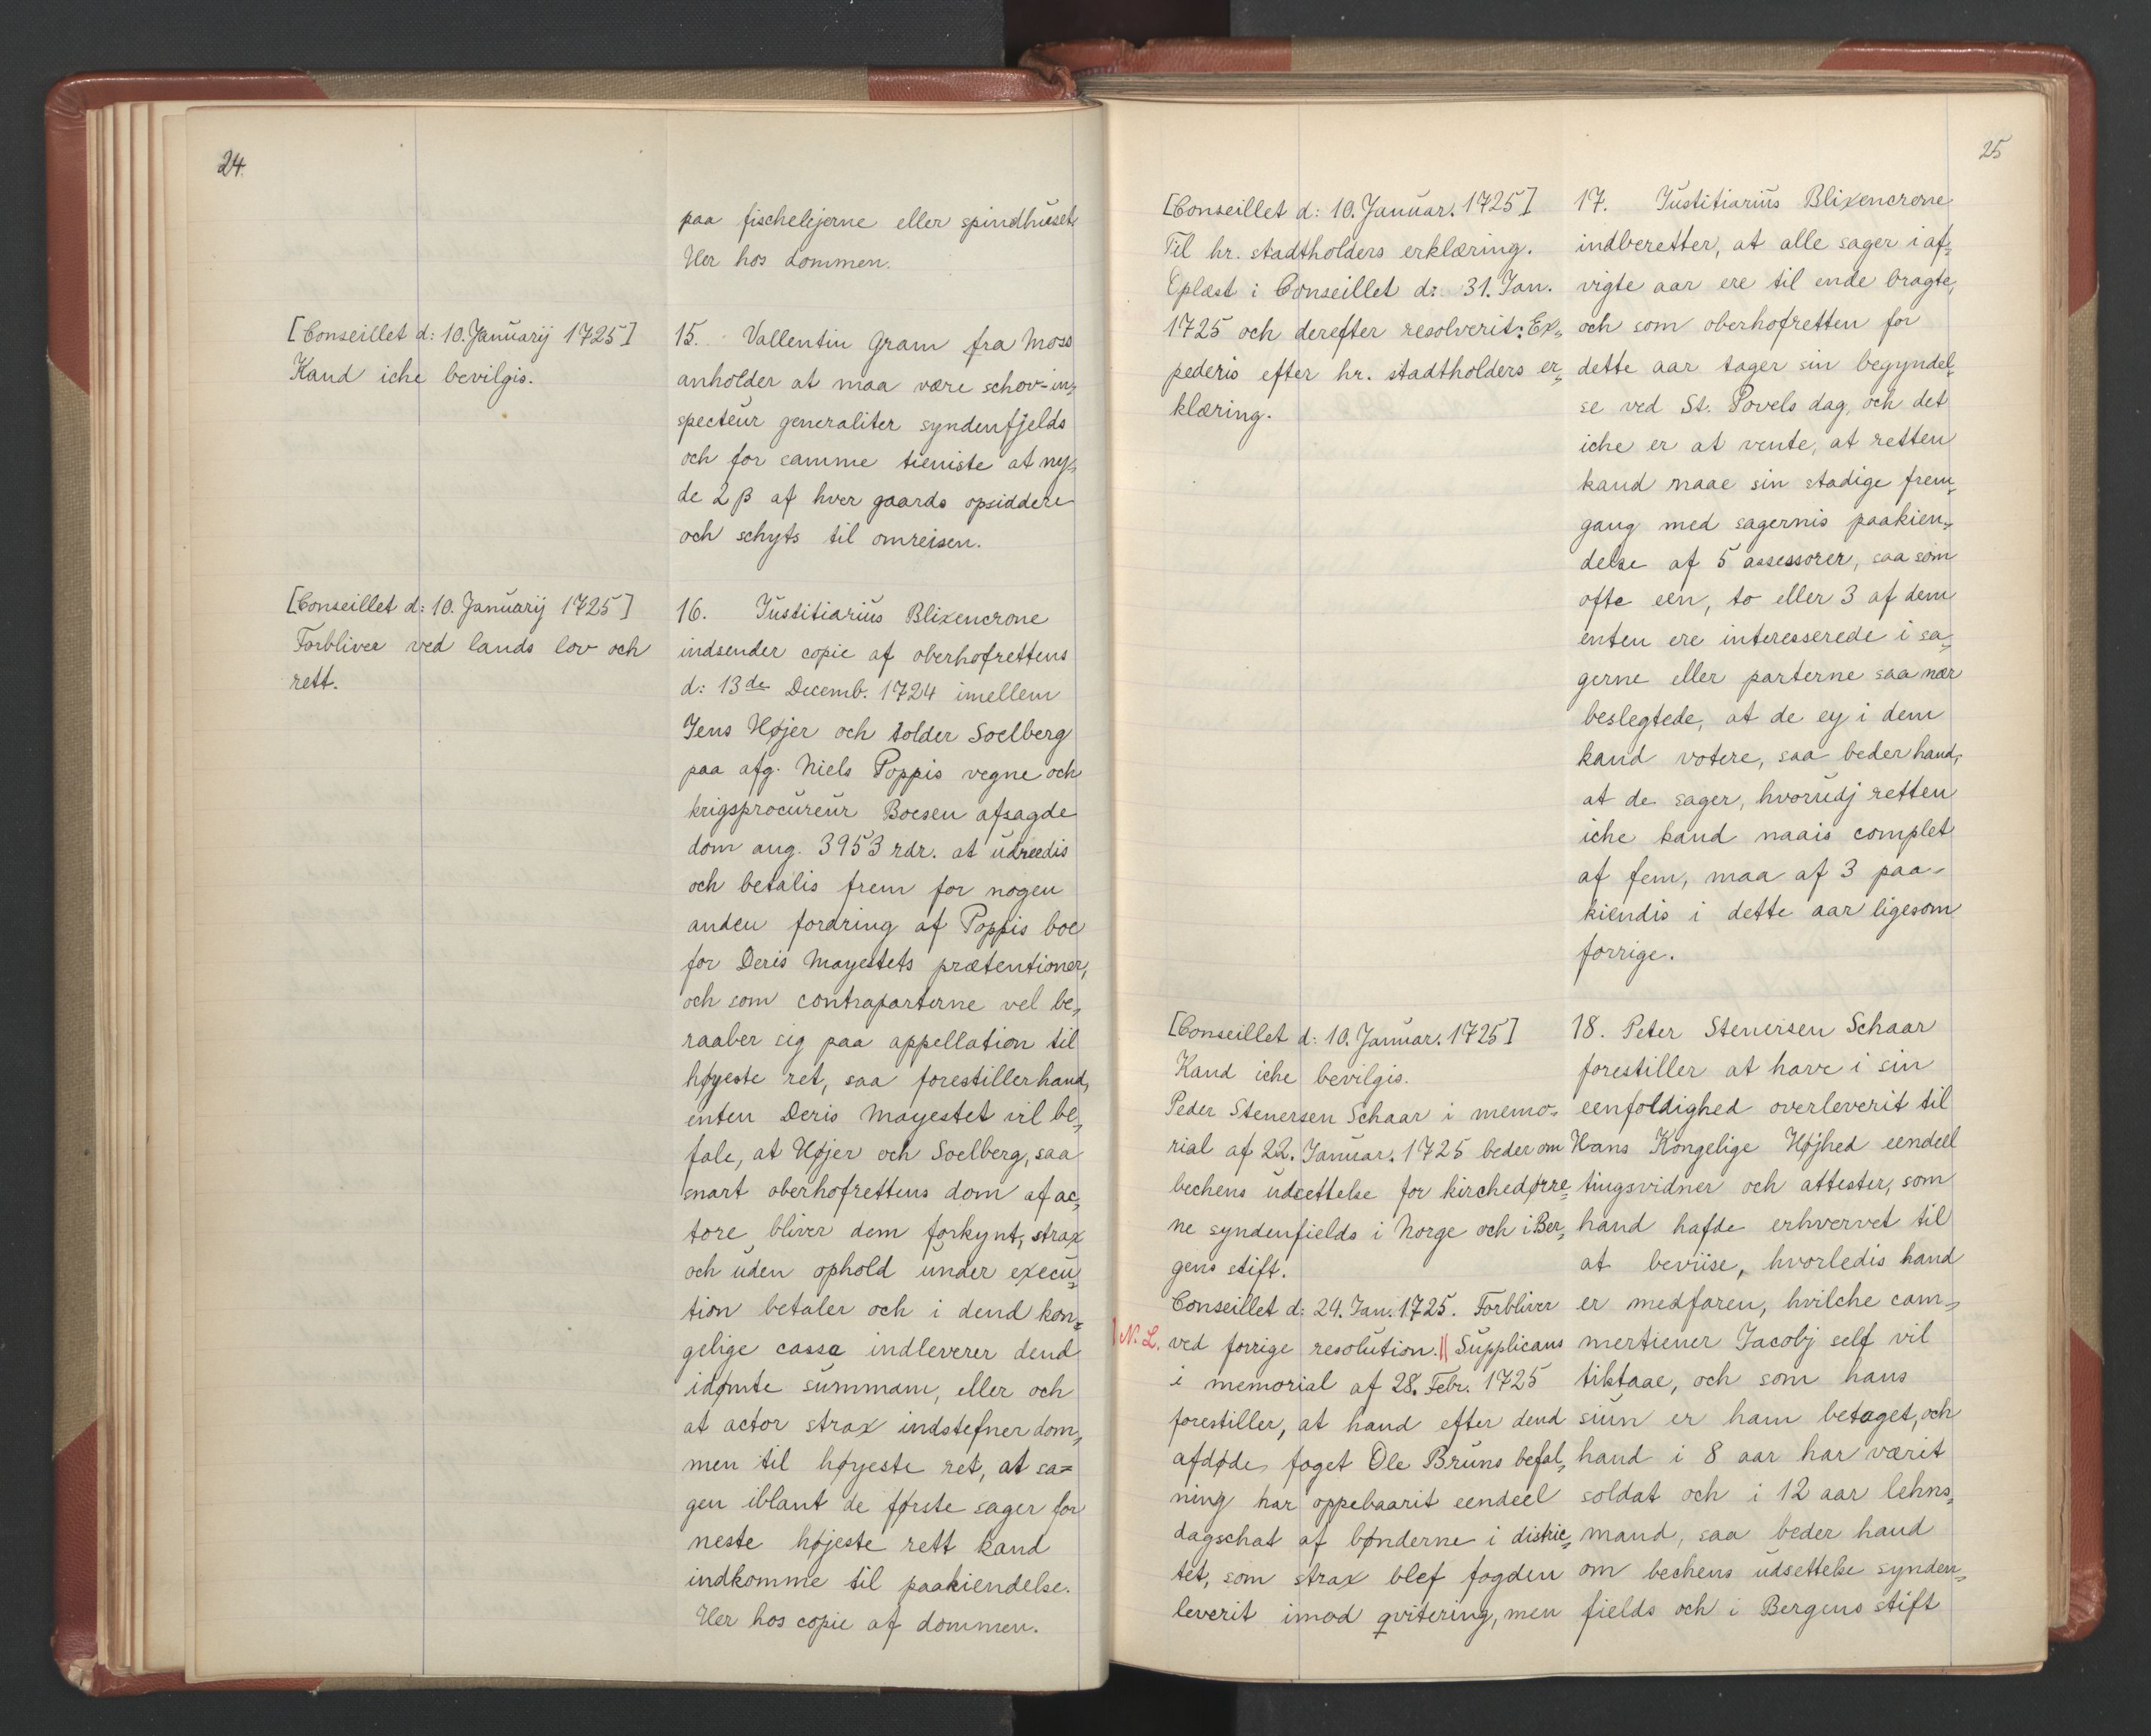 24.
paa fischelejerne eller spindhuset.
Her hos dommen.
[Conseillet d: 10. Januarij 1725]
Kand iche bevilgis.
15. Vallentin Gram fra Moss
anholder at maa være schov-in-
specteur generaliter syndenfjelds
och for samme tieniste at ny-
de 2 β af hver gaards opsiddere
och schyts til omreisen.
[Conseillet d: 10. Januarij 1725]
Forbliver ved lands lov och
rett.
16. Justitiarius Blixencrone
indsender copie af oberhofrettens
d: 13de Decemb. 1724 imellem
Jens Højer och tolder Soelberg
paa afg. Niels Poppis vegne och
krigsprocureur Boesen afsagde
dom ang. 3953 rdr. at udreedis
och betalis frem for nogen
anden fordring af Poppis boe
for Deris Mayestets prætentioner,
och som contraparterne vel be-
raaber sig paa appellation til
høyeste ret, saa forestiller hand,
enten Deris Mayestet vil be-
fale, at Højer och Soelberg, saa
snart oberhofrettens dom af ac-
tore bliver dem forkynt, strax
och uden ophold under execu-
tion betaler och i dend kon-
gelige cassa indleverer dend
idømte summam, eller och
at actor strax indstefner dom-
men til høyeste ret, at sa-
gen iblant de første sager for
neste højeste rett kand
indkomme til paakiendelse.
Her hos copie af dommen.
25
[Conseillet d: 10. Januar. 1725]
Til hr. stadtholders erklæring.
Oplæst i Conseillet d: 31. Jan.
1725 och derefter resolverit: Ex-
pederis efter hr. stadtholders er-
klæring.
17. Justitiarius Blixencrone
indberetter, at alle sager i af-
vigte aar ere til ende bragte,
och som oberhofretten for
dette aar tager sin begyndel-
se ved St. Povels dag, och det
iche er at vente, at retten
kand naae sin stadige frem-
gang med sagernis paakien-
delse af 5 assessorer, saa som
ofte een, to eller 3 af dem
enten ere interesserede i sa-
gerne eller parterne saa nær
beslegtede, at de ey i dem
kand votere, saa beder hand,
at de sager, hvorudj retten
iche kand naais complet
af fem, maa af 3 paa-
kiendis i dette aar ligesom
forrige.
[Conseillet d: 10. Januar. 1725]
Kand iche bevilgis.
Peder Stenersen Schaar i memo-
rial af 22. Januar. 1725 beder om
bechens udsettelse for kirchedørre-
ne syndenfields i Norge och i Ber-
gens stift.
Conseillet d: 24. Jan. 1725. Forbliver
N. L. ved forrige resolution. || Supplicans
i memorial af 28. Febr. 1725
forestiller, at hand efter dend
afdøde foget Ole Bruns befal-
ning har oppebaarit eendeel
dagschat af bønderne i distric-
tet, som strax blef fogden
leverit imod qvitering, men
18. Peter Stenersen Schaar
forestiller at have i sin
eenfoldighed overleverit til
Hans Kongelige Højhed eendeel
tingsvidner och attester, som
hand hafde erhvervet til
at beviise, hvorledis hand
er medfaren, hvilche com-
mertiener Jacobj self vil
tiltaae, och som hans
siun er ham betaget, och
hand i 8 aar har værit
soldat och i 12 aar lehns-
mand, saa beder hand
om bechens udsettelse synden-
fields och i Bergens stift